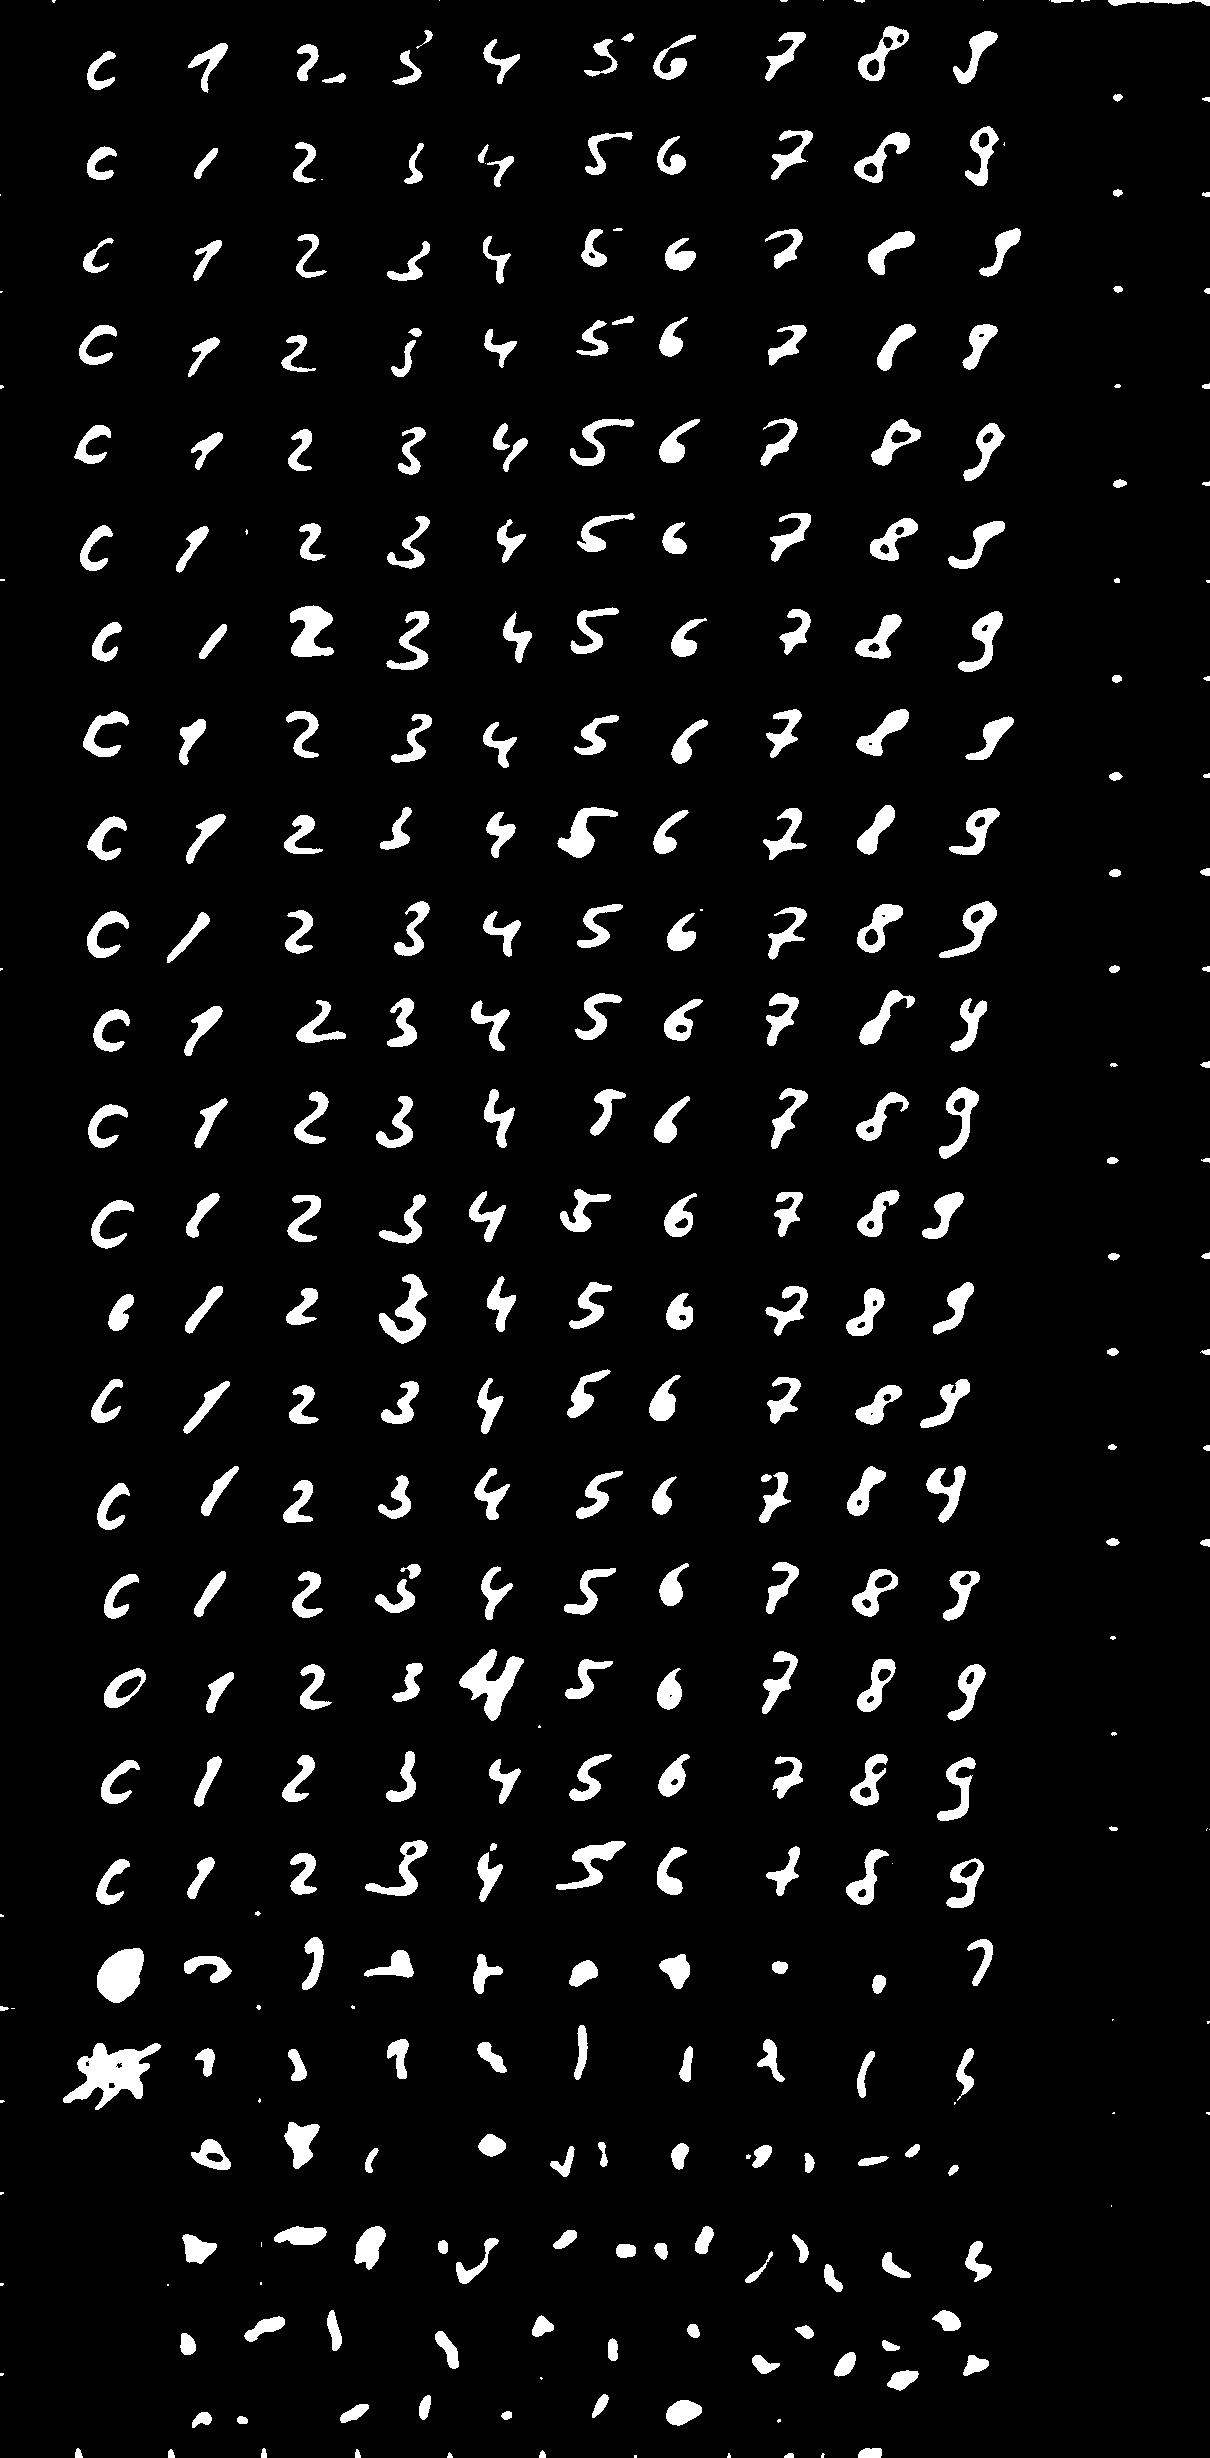 C 1 2 3 4 5 6 7 8 9
C 1 2 3 4 5 6 7 8 9
C 1 2 3 4 5 6 7 8 9
C 1 2 3 4 5 6 7 8 9
C 1 2 3 4 5 6 7 8 9
C 1 2 3 4 5 6 7 8 9
C 1 2 3 4 5 6 7 8 9
C 1 2 3 4 5 6 7 8 9
C 1 2 3 4 5 6 7 8 9
C 1 2 3 4 5 6 7 8 9
C 1 2 3 4 5 6 7 8 9
C 1 2 3 4 5 6 7 8 9
C 1 2 3 4 5 6 7 8 9
6 1 2 3 4 5 6 7 8 9
C 1 2 3 4 5 6 7 8 9
C 1 2 3 4 5 6 7 8 9
C 1 2 3 4 5 6 7 8 9
0 1 2 3 4 5 6 7 8 9
C 1 2 3 4 5 6 7 8 9
C 1 2 3 4 5 6 7 8 9